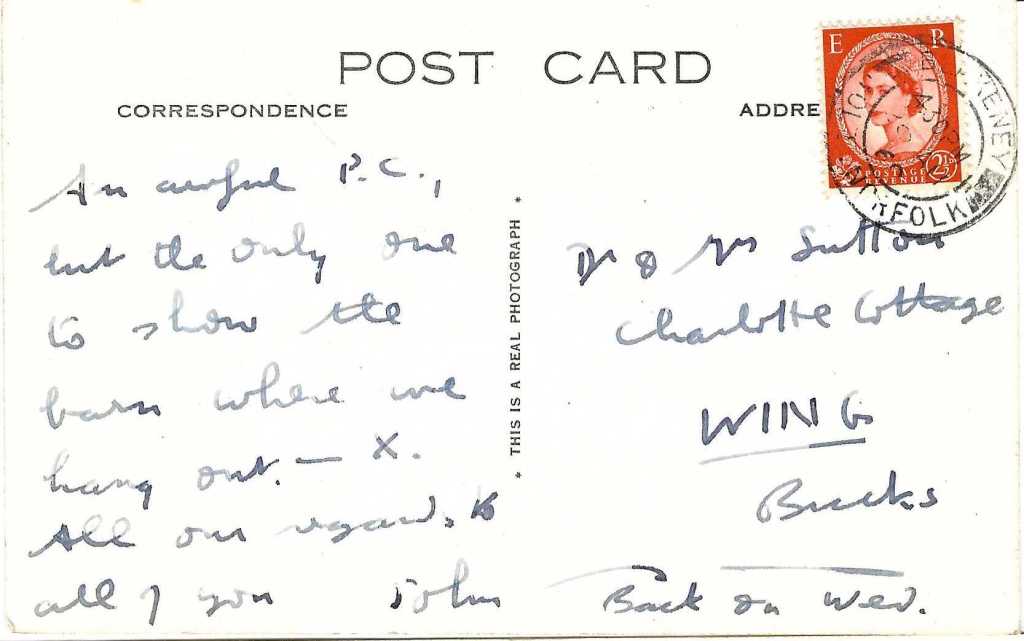 POST CARD
CORRESPONDENCE
ADDRE
E R
POSTAGE
REVENUE
2½D
NORFOLK
4 30 PM
An awful P.C.,
but the only one
to show the
barn where we
hang out. — X.
All our regards to
all of you John
* THIS IS A REAL PHOTOGRAPH *
Dr & Mrs Sutton
Charlotte Cottage
WING
Bucks
Back on Wed.